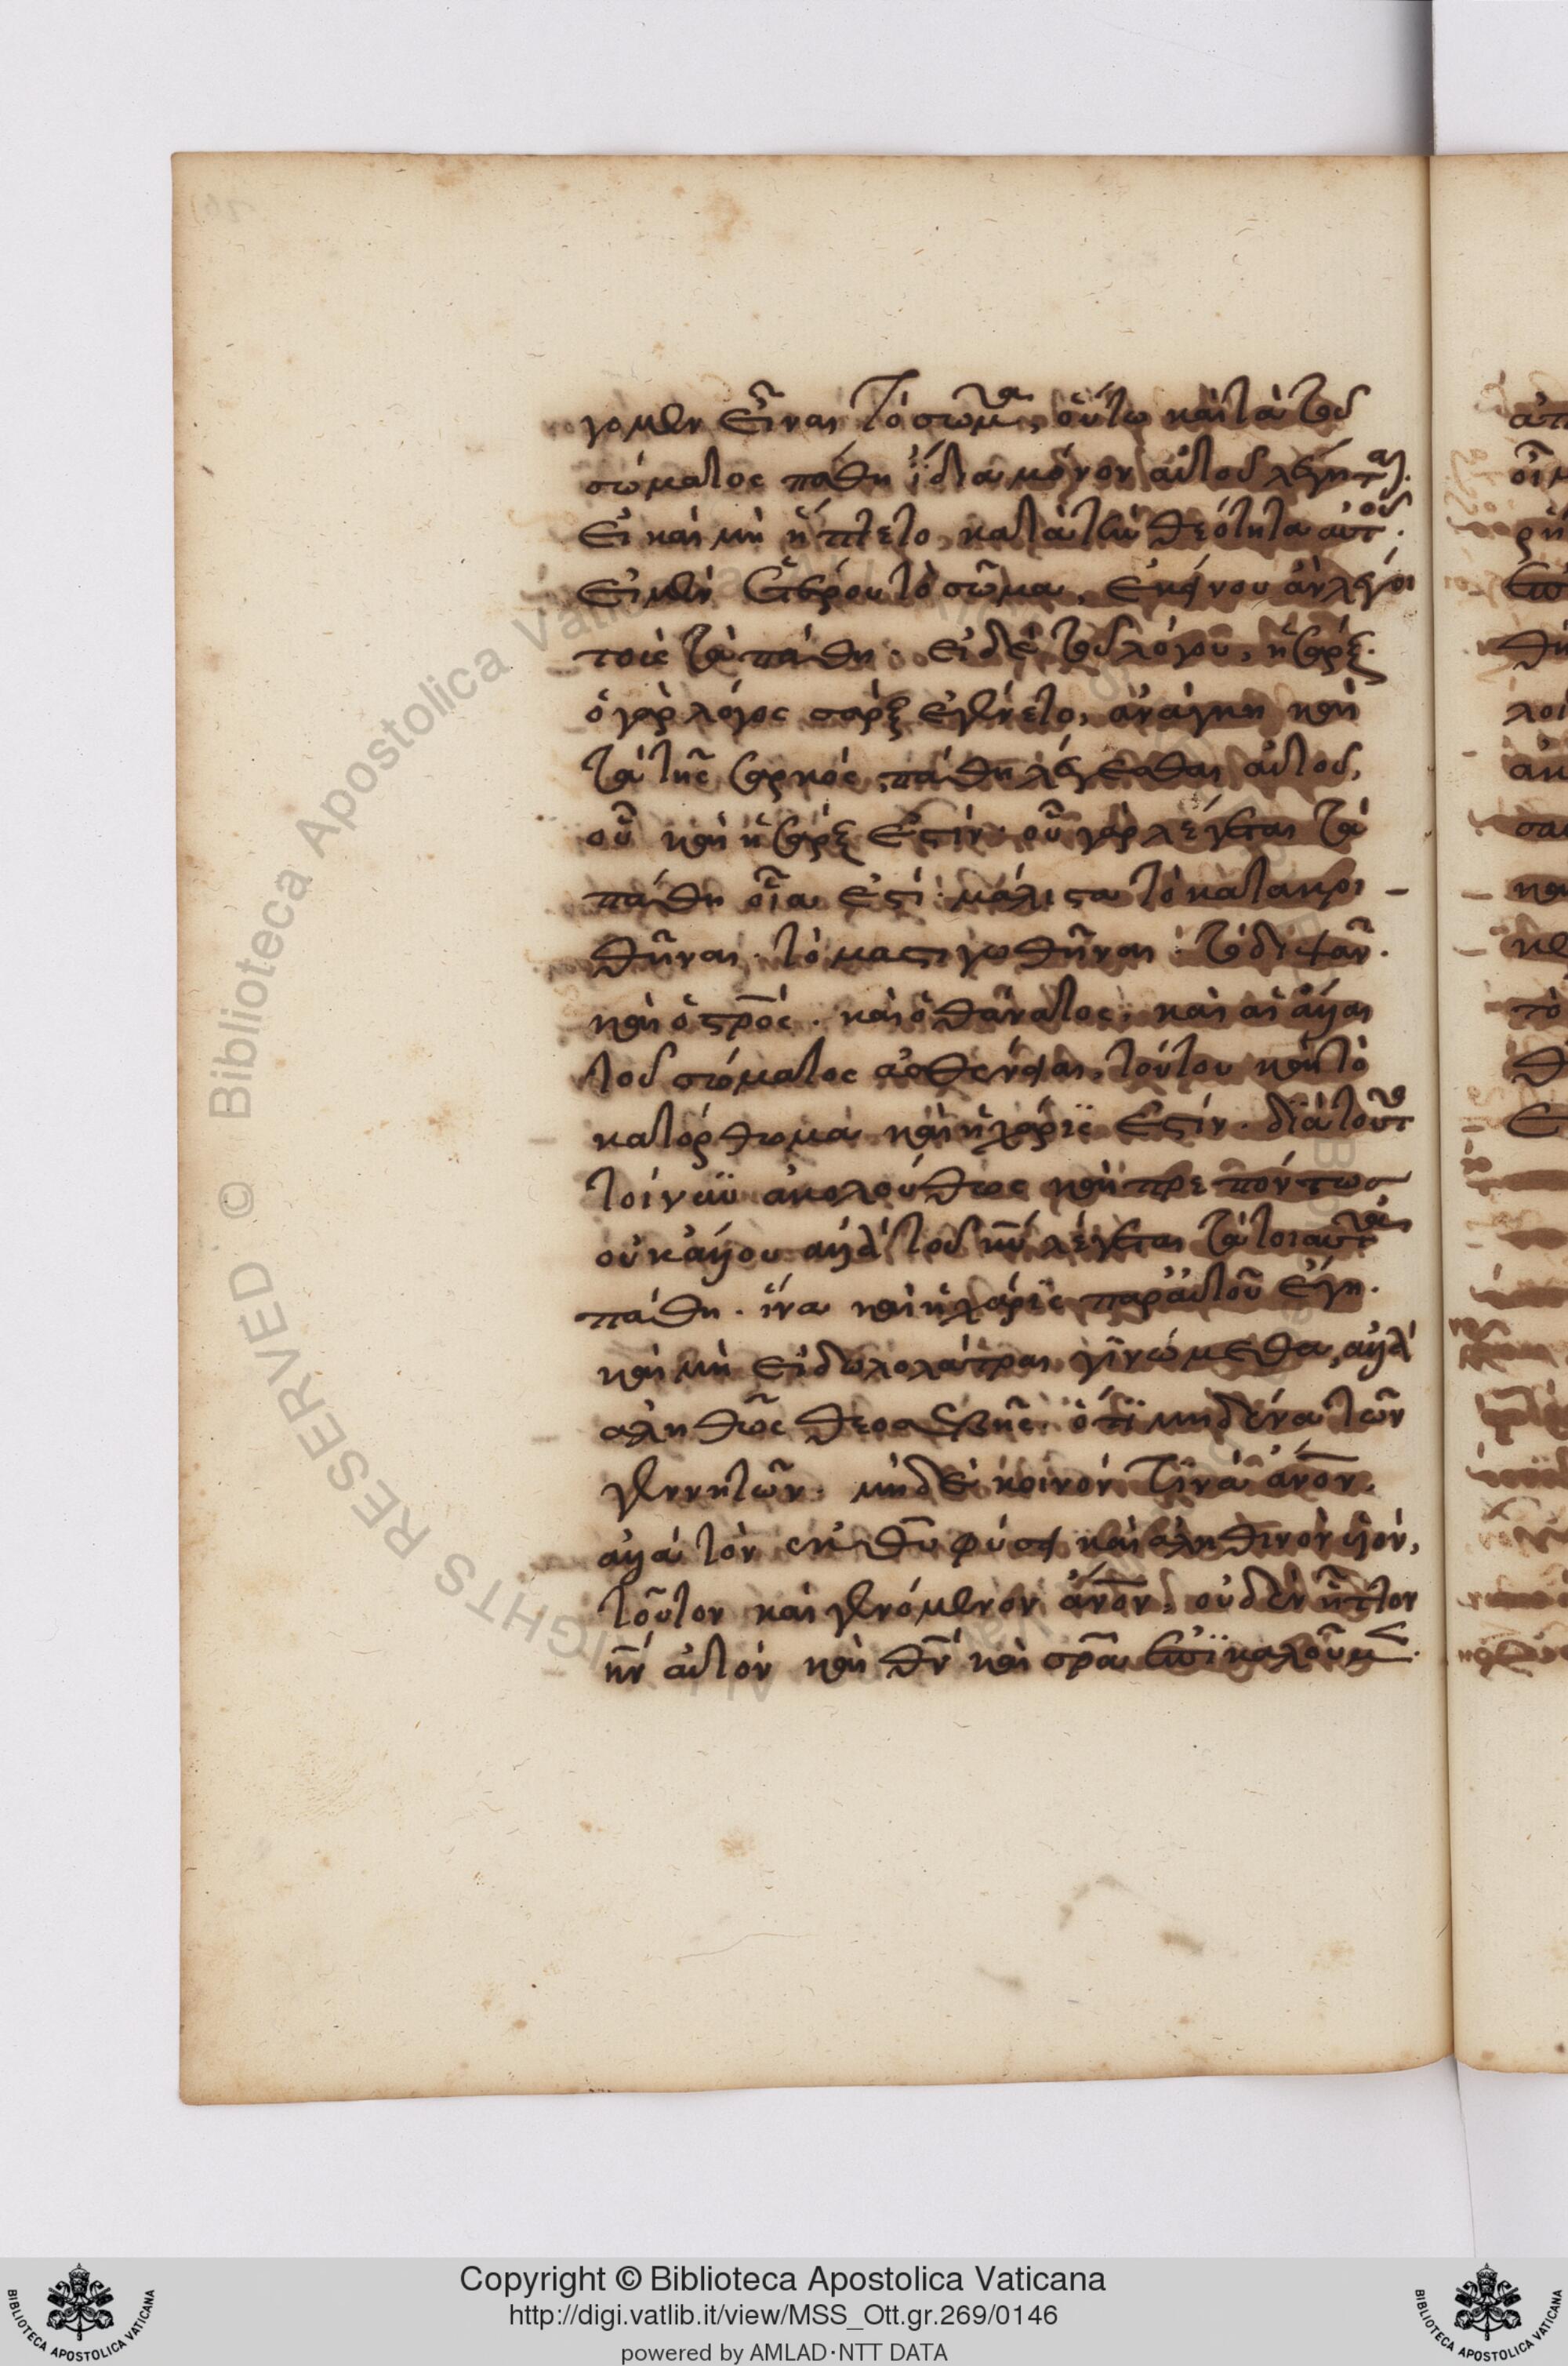 γομεν εἶναι τὸ σῶμα, οὕτω καὶ τὰ τοῦ
σώματος πάθη ἴδια μόνον αὐτοῦ λέγηται.
εἰ καὶ μὴ ἥπτετο κατὰ τὴν θεότητα αὐτοῦ.
εἰ μὲν ἑτέρου τὸ σῶμα, ἐκείνου ἂν λέγοι
το τὰ πάθη. εἰ δὲ τοῦ λόγου, ἡ σάρξ.
ὁ γὰρ λόγος σὰρξ ἐγένετο, ἀνάγκη καὶ
τὰ τῆς σαρκὸς πάθη λέγεσθαι αὐτοῦ,
οὗ καὶ ἡ σάρξ ἐστιν. οὗ γὰρ λέγεται τὰ
πάθη οἷά ἐστι μάλιστα τὸ κατακρι-
θῆναι. τὸ μαστιγωθῆναι. τὸ διψᾶν.
καὶ ὁ στρος. καὶ ὁ θάνατος, καὶ αἱ ἄλλαι
τοῦ σώματος ἀσθένειαι, τούτου καὶ τὸ
κατόρθωμα καὶ ἡ χάρις ἐστίν. διὰ τοῦτο
τοίνυν ἀκολούθως καὶ πρεπόντως
οὐκ ἄλλου ἀλλὰ τοῦ κυ λέγεται τὰ τοιαῦτα
πάθη. ἵνα καὶ ἡ χάρις παρ᾽ αὐτοῦ εἴη.
καὶ μὴ εἰδωλολάτραι γινώμεθα, ἀλλὰ
ἀληθῶς θεοσεβεῖς. ὅτι μηδένα τῶν
γεννητῶν. μηδὲ κοινόν τινα ἄνον.
ἀλλὰ τὸν ἐκ θυ φύσει καὶ ἀληθινὸν υἱόν,
τοῦτον καὶ γενόμενον ἄνον, οὐδὲν ἧττον
κν αὐτὸν καὶ θν καὶ σρα ἐπικαλούμεθα.
Copyright © Biblioteca Apostolica Vaticana
http://digi.vatlib.it/view/MSS_Ott.gr.269/0146
powered by AMLAD·NTT DATA